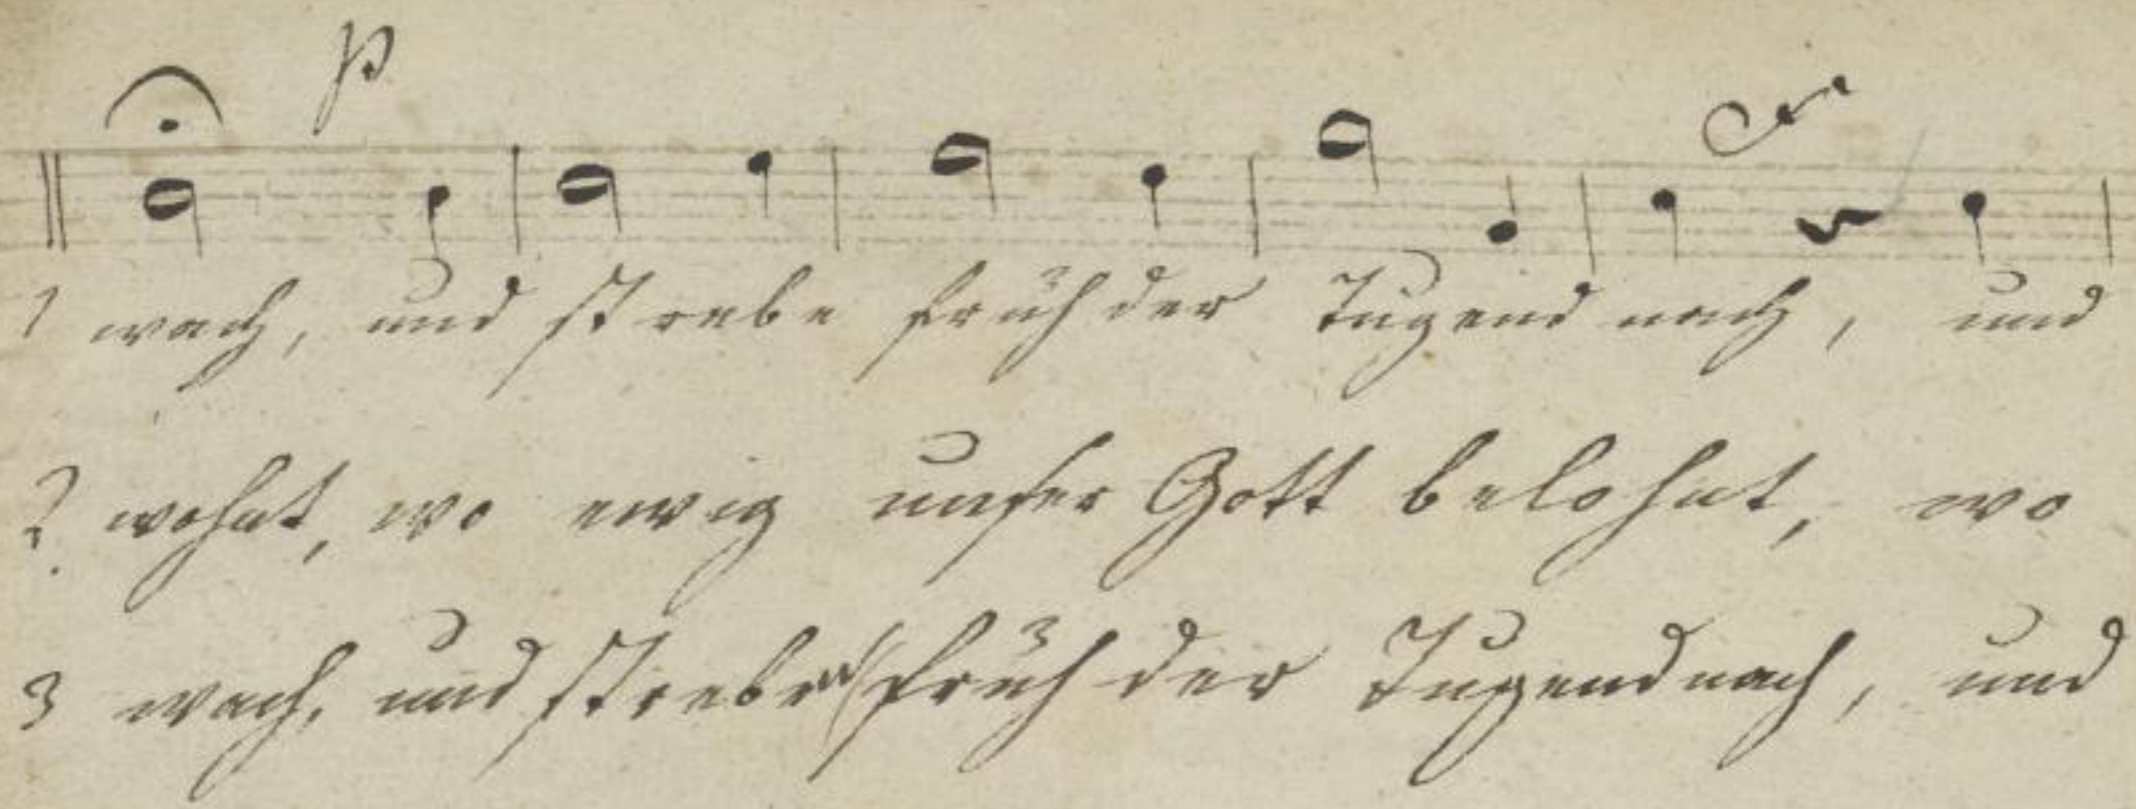 p
1 wach, und strebe früh der Tugend nach, und
2 wohnt, wo ewig unser Gott belohnt, wo
3 wach, und strebe früh der Tugend nach, und